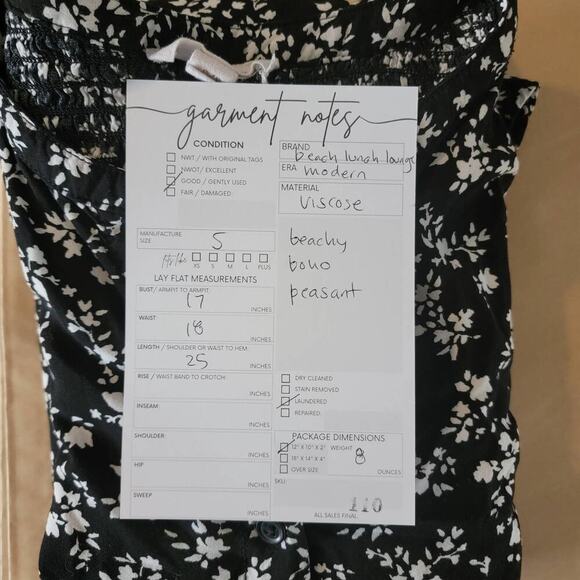 garment notes
CONDITION
NWT / WITH ORIGINAL TAGS
NWOT/ EXCELLENT
GOOD / GENTLY USED
FAIR / DAMAGED:
BRAND
beach lunch lounge
ERA modern
MATERIAL
Viscose
MANUFACTURE
SIZE S
fits like XS S M L PLUS
LAY FLAT MEASUREMENTS
BUST/ ARMPIT TO ARMPIT:
17 INCHES
WAIST:
18 INCHES
LENGTH / SHOULDER OR WAIST TO HEM:
25 INCHES
RISE / WAIST BAND TO CROTCH:
INCHES
INSEAM:
INCHES
SHOULDER:
INCHES
HIP
INCHES
SWEEP
INCHES
beachy
boho
peasant
DRY CLEANED
STAIN REMOVED
LAUNDERED
REPAIRED:
PACKAGE DIMENSIONS
12" X 10" X 2" WEIGHT 8
18" X 14" X 4"
OVER SIZE OUNCES
SKU:
110
ALL SALES FINAL